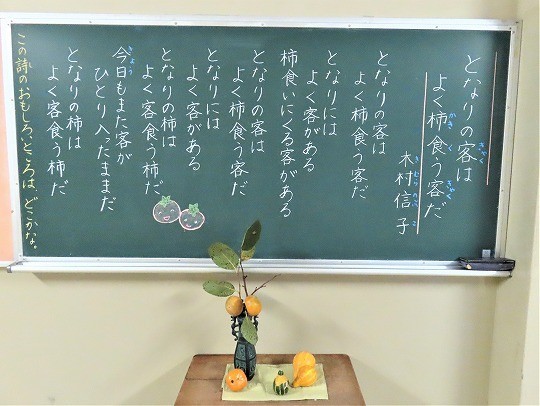 となりの客は
きゃく
よく柿食う客だ
かき く きゃく
木村信子
き むら のぶ こ
となりの客は
よく柿食う客だ
となりには
よく客がある
柿食いにくる客がある
となりの客は
よく柿食う客だ
となりには
よく客がある
となりの柿は
よく客食う柿だ
今日もまた客が
きょう
ひとり入ったままだ
となりの柿は
よく客食う柿だ
この詩のおもしろいところは、どこかな。